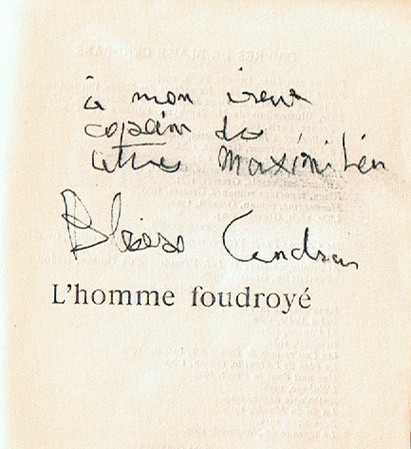 à mon vieux
copain de
lettres Maximilien
Blaise Cendrars
L'homme foudroyé